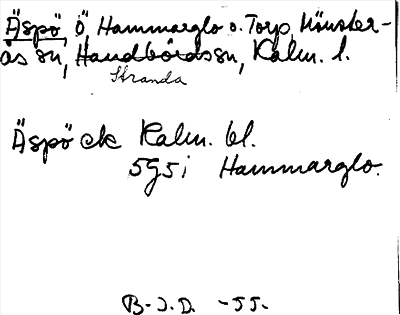 Äspö, ö, Hammarglo o. Torp, Mönster-
ås sn, Handbördssn, Kalm. l.
Stranda
Äspö ek Kalm. bl.
5g5i Hammarglo.
B-J.D. -55.